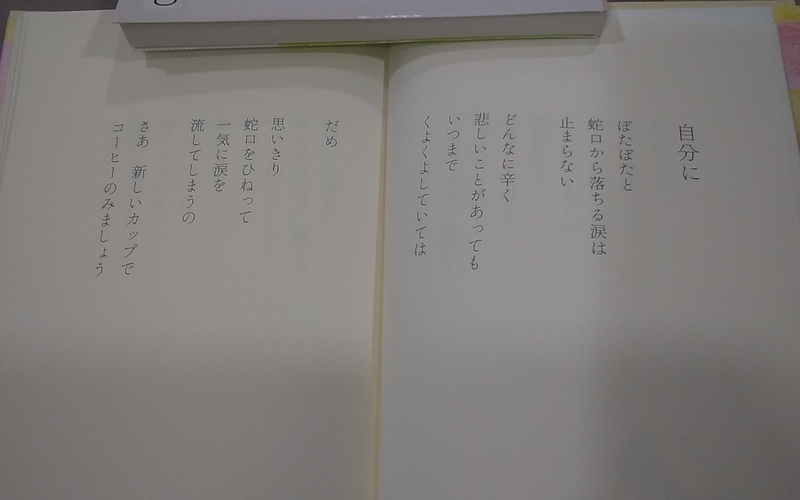 自分に
ぽたぽたと
蛇口から落ちる涙は
止まらない
どんなに辛く
悲しいことがあっても
いつまで
くよくよしていては
だめ
思いきり
蛇口をひねって
一気に涙を
流してしまうの
さあ　新しいカップで
コーヒーのみましょう